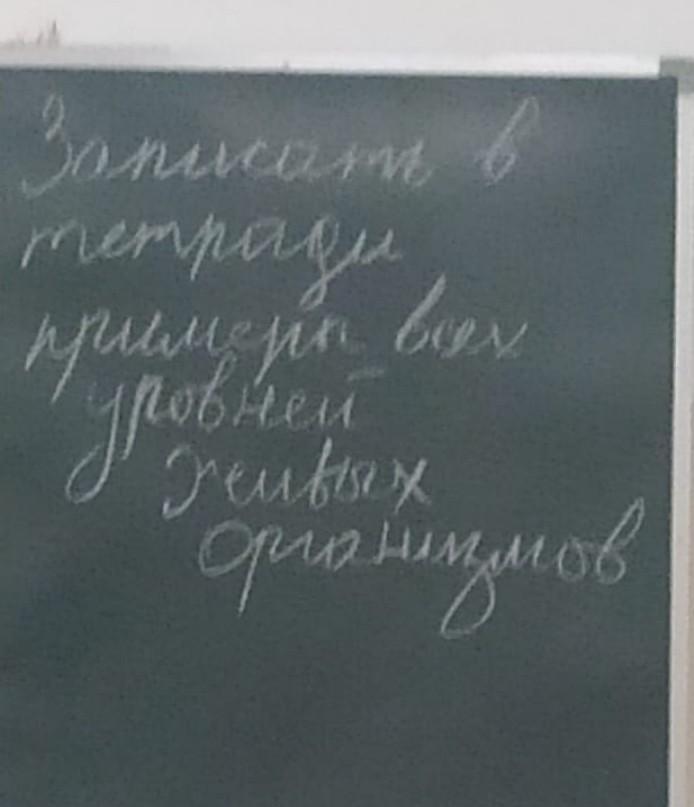 Записать в
тетради
примеры всех
уровней
живых
организмов